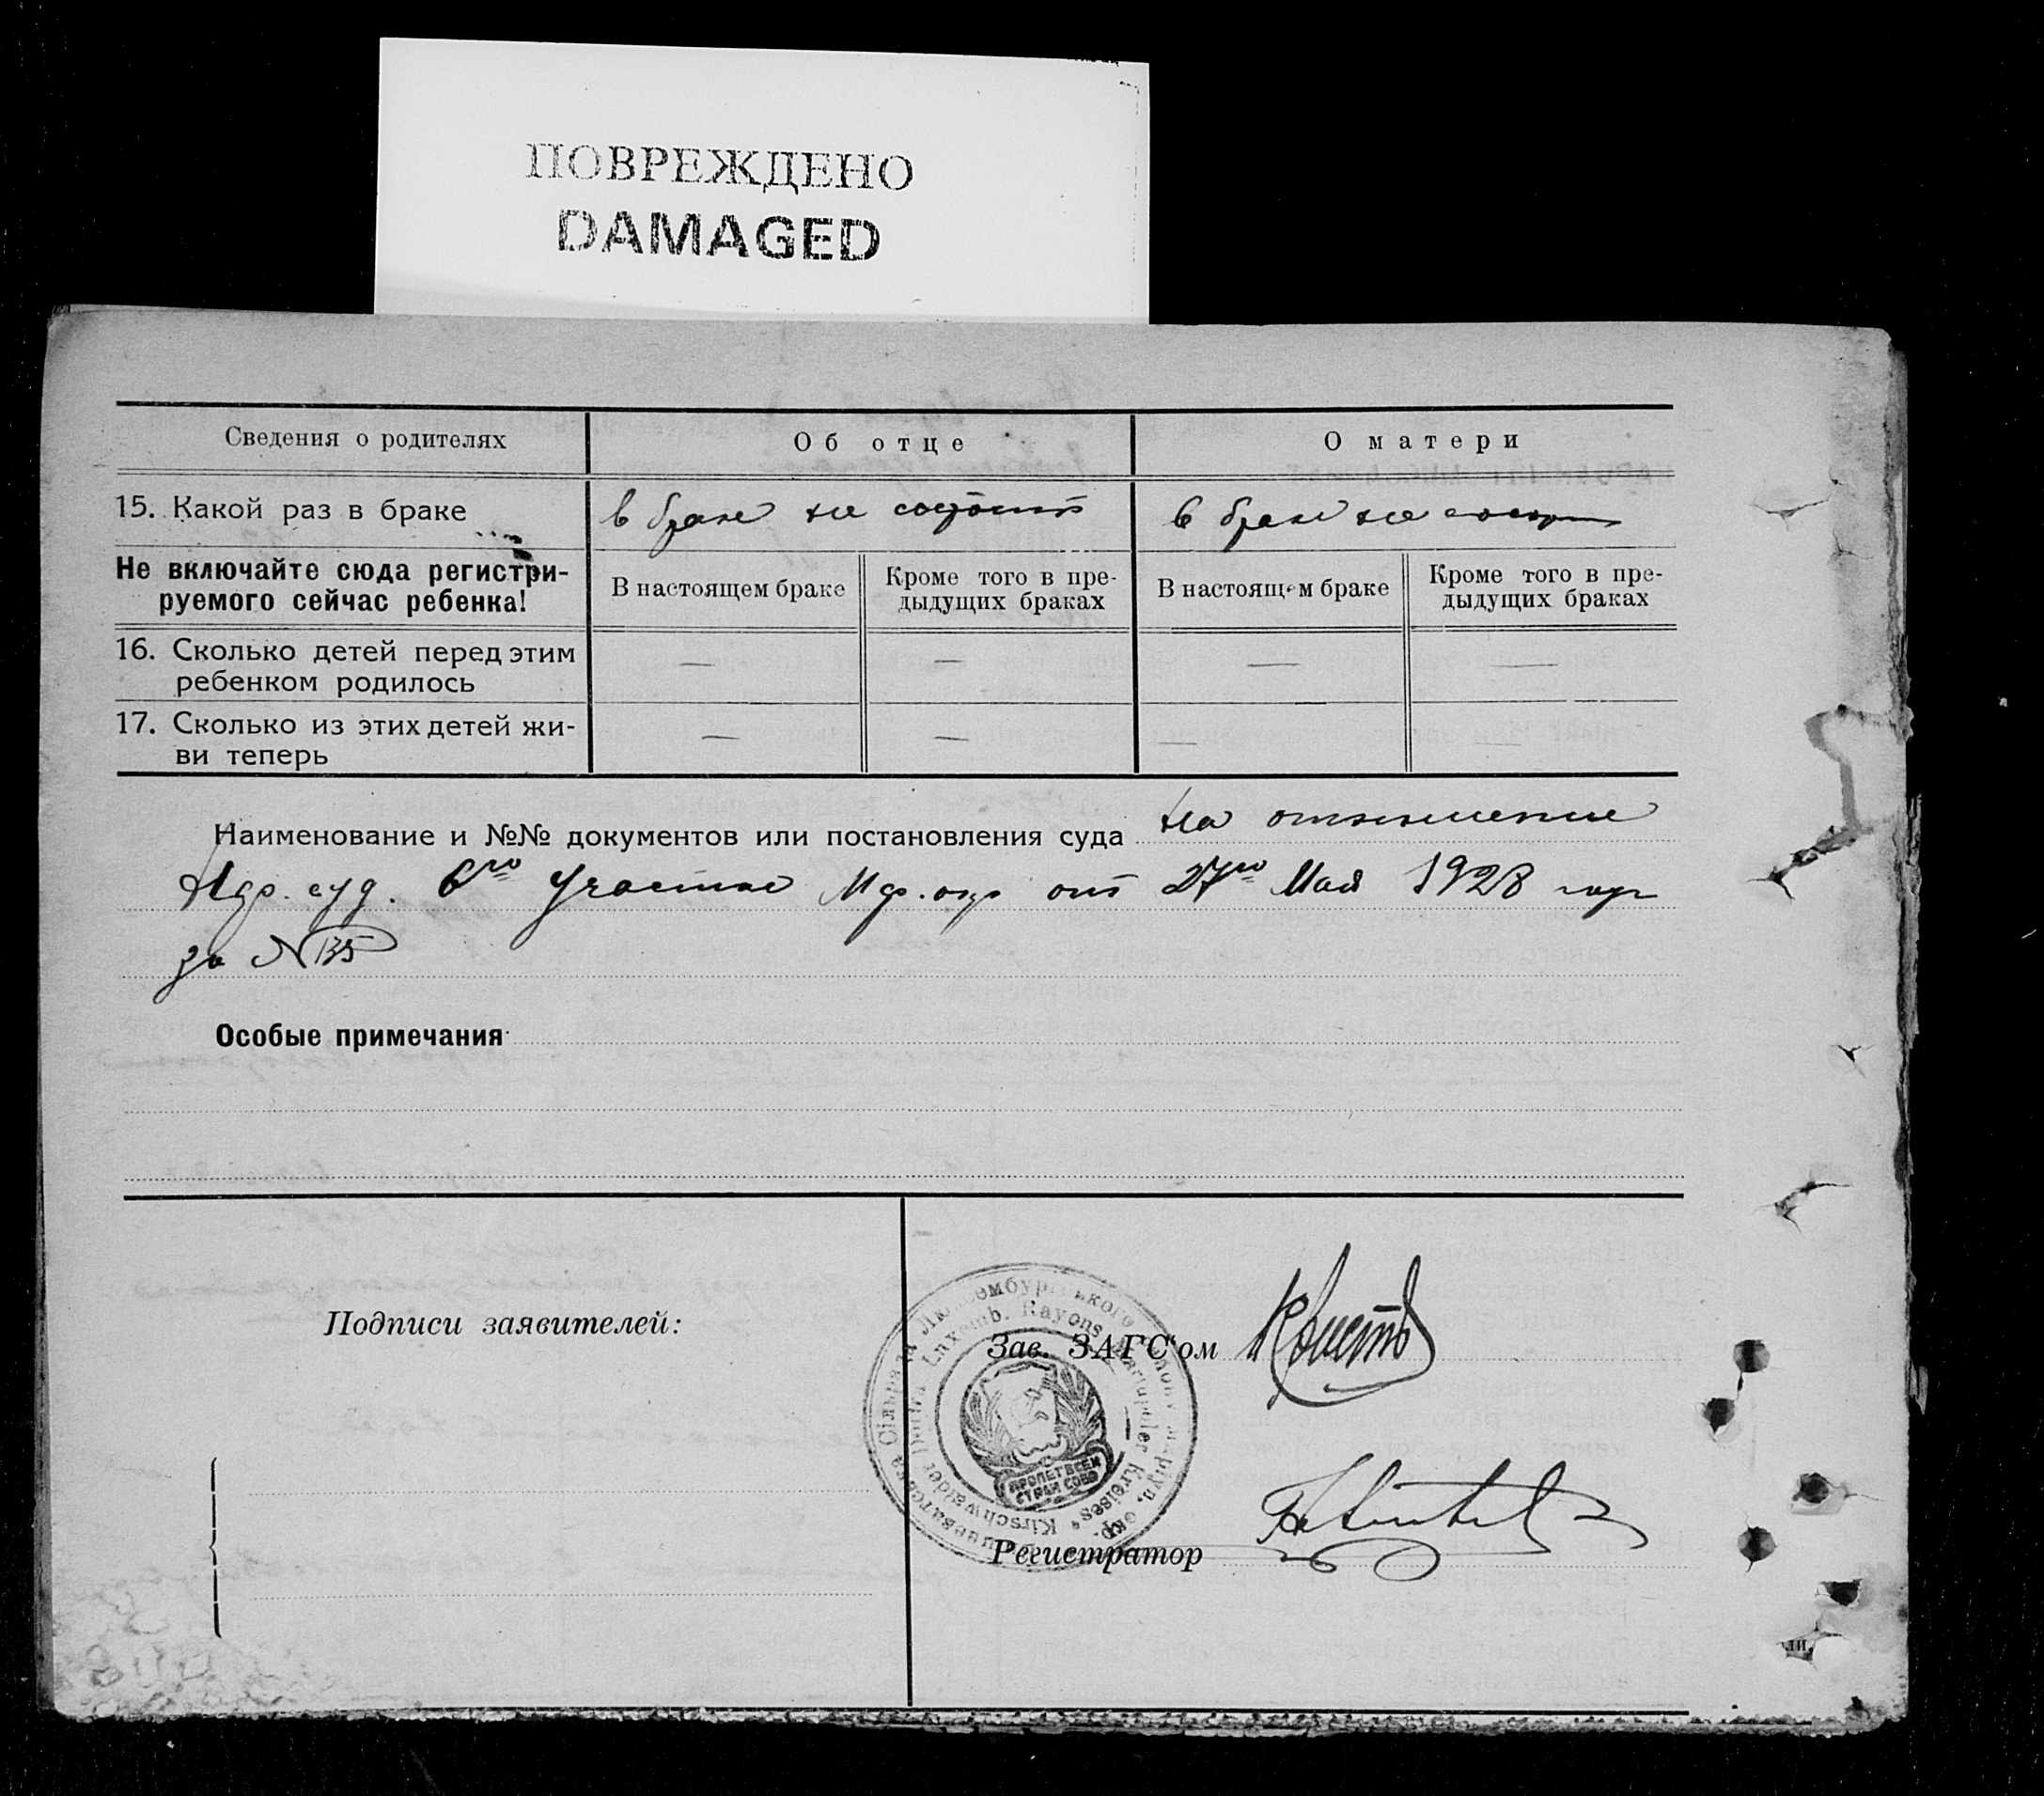 ПОВРЕЖДЕНО
DAMAGED
Сведения о родителях
Об отце
О матери
15. Какой раз в браке
в браке не состоит
в браке не состоит
Не включайте сюда регистри-
руемого сейчас ребенка!
В настоящем браке
Кроме того в пре-
дыдущих браках
В настоящем браке
Кроме того в пре-
дыдущих браках
16. Сколько детей перед этим
ребенком родилось
— — — —
17. Сколько из этих детей жи-
ви теперь
— — — —
Наименование и №№ документов или постановления суда на отношение
Нар. суд. 6го участка от 27го Мая 1928
за № 135
Особые примечания
Подписи заявителей:
Зав. ЗАГС'ом
Регистратор
Rayons Mariupoler Kreises, Kirschwalder
ПРОЛЕТ ВСЕХ
СТРАН СОЕД